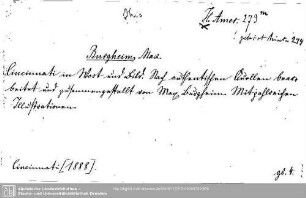 H. Amer. 279 m
Burgheim, Max.
Cincinnati in Wort und Bild. Nach authentischen Quellen bear-
beitet und zusammengestellt von Max Burgheim. Mit zahlreichen
Illustrationen.
Cincinnati: [1888].
Sächsische Landesbibliothek -
Staats- und Universitätsbibliothek Dresden